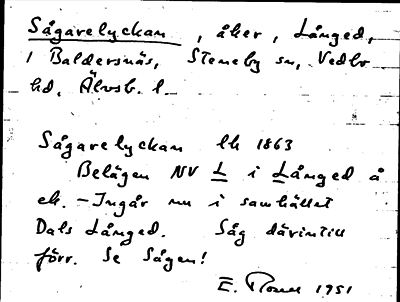 Sågarelyckan, åker, Långed,
i Baldersnäs, Steneby sn, Vedbo
hd, Älvsb. l.
Sågarelyckan lh 1863
Belägen NV L i Långed å
ek. - Ingår nu i samhället
Dals Långed. Såg därintill
förr. Se Sågen!
E. 1951